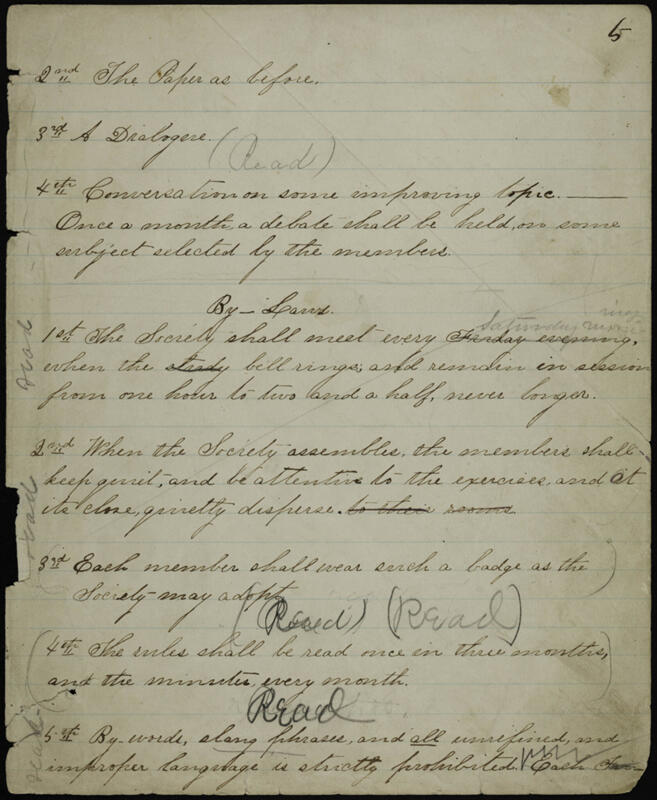 5
2nd The Paper as before.
3rd A Dialogue.
(Read)
4th Conversation on some improving topic. —
Once a month, a debate shall be held, on some
subject selected by the members.
By-Laws.
Saturday morning
1st The Society shall meet every Friday evening,
when the study bell rings; and remain in session
from one hour to two and a half, never longer.
read
2nd When the Society assembles, the members shall
keep quiet, and be attentive to the exercises, and at
its close, quietly disperse. to their rooms
read
3rd Each member shall wear such a badge as the
Society may adopt.
(Read) (Read)
(4th The rules shall be read once in three months,
and the minutes, every month.
Read
5th By-words, slang phrases, and all unrefined, and
improper language is strictly prohibited. Each
read